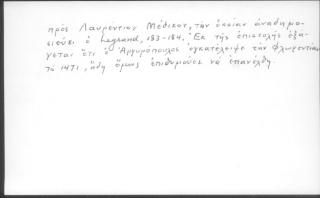 πρὸς Λαυρέντιον Μέδικον, τὴν ὁποίαν ἀναδημο-
σιεύει ὁ Legrand, 183-184. Ἐκ τῆς ἐπιστολῆς ἐξά-
γεται ὅτι ὁ Ἀργυρόπουλος ἐγκατέλειψε τὴν Φλωρεντίαν
τὸ 1471, ἤδη ὅμως ἐπιθυμοῦσε νὰ ἐπανέλθῃ.